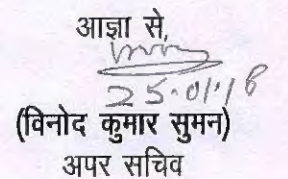 आज्ञा से,
25.01.18
(विनोद कुमार सुमन)
अपर सचिव